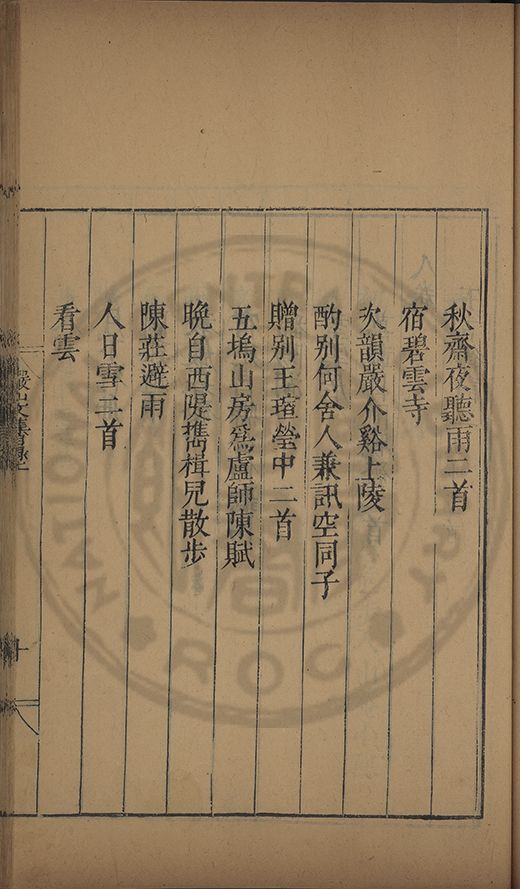 秋齋夜聽雨二首
宿碧雲寺
次韻嚴介谿上陵
酌別何舍人兼訊空同子
贈別王瑄瑩中二首
五塢山房爲盧師陳賦
晩自西隄攜楫兒散步
陳莊避雨
人日雪二首
看雲